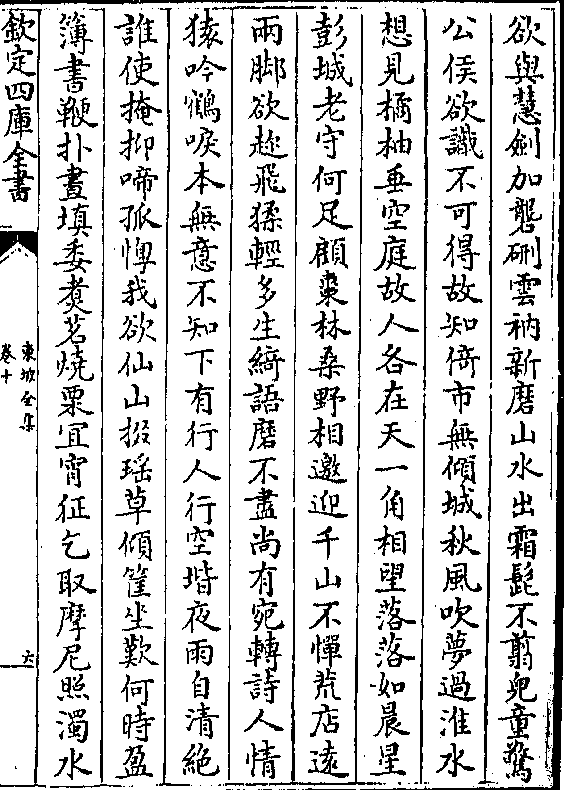 欲與慧劍加礱硎雲衲新磨山水出霜髭不翦兒童驚
公侯欲識不可得故知倚市無傾城秋風吹夢過淮水
想見橘柚垂空庭故人各在天一角相望落落如晨星
彭城老守何足顧棗林桑野相邀迎千山不憚荒店遠
兩脚欲趂飛猱輕多生綺語磨不盡尚有宛轉詩人情
猿吟鶴唳本無意不知下有行人行空堦夜雨自清絶
誰使掩抑啼孤惸我欲仙山掇瑶草傾筐坐歎何時盈
簿書鞭扑晝填委煑茗燒栗宜宵征乞取摩尼照濁水
欽定四庫全書
東坡全集
卷十
六